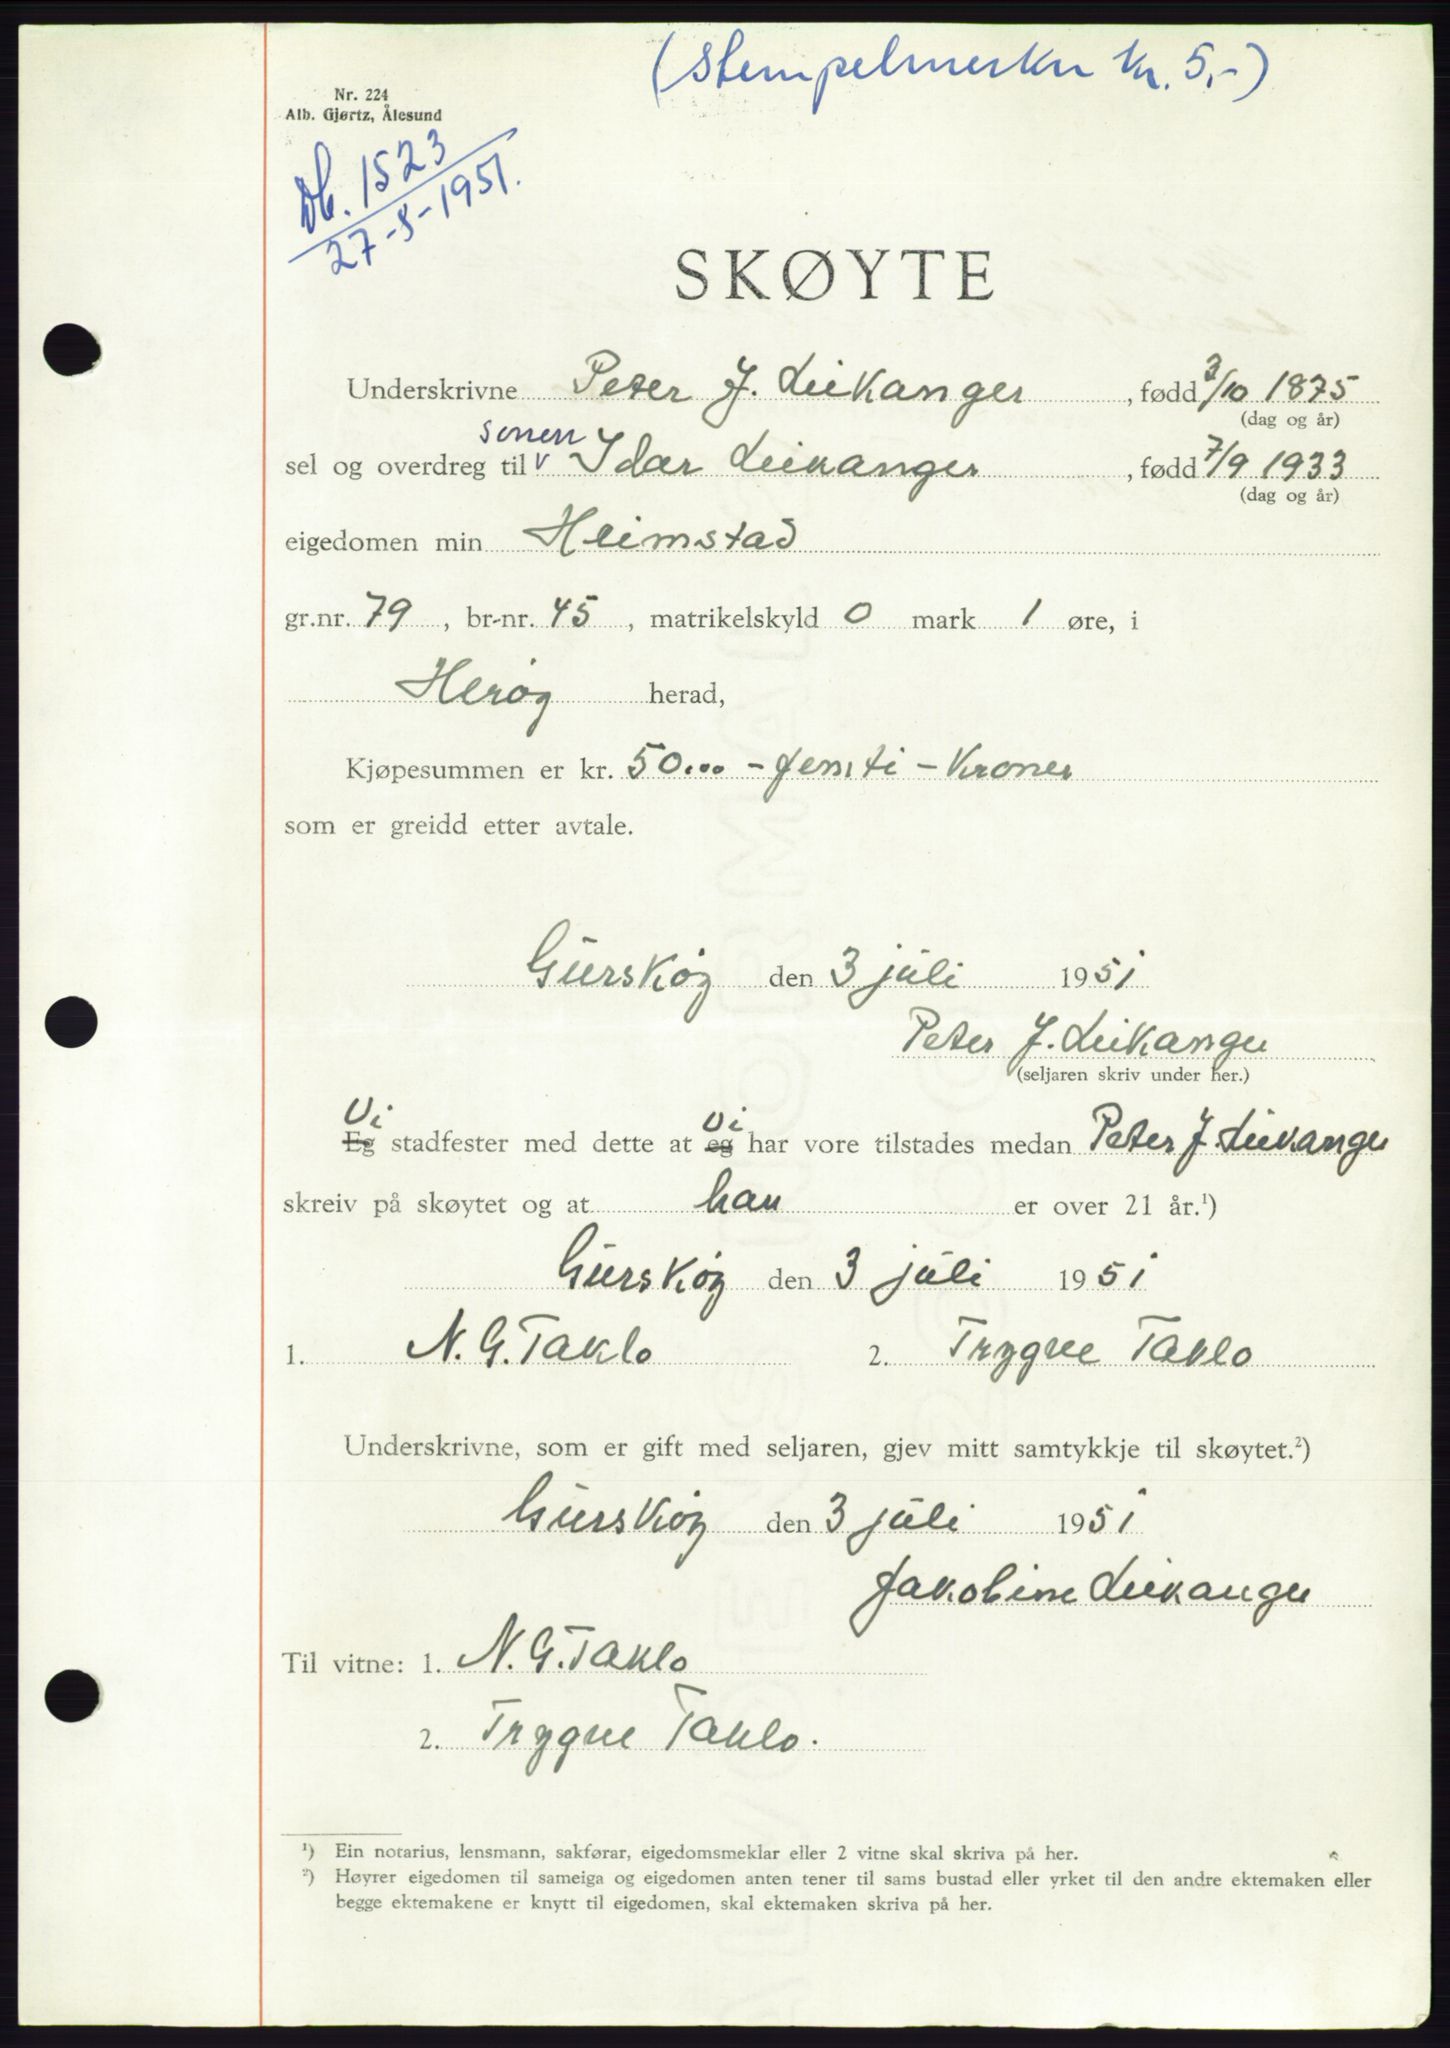 (Stempelmerker kr. 5,-)
Nr. 224
Alb. Gjørtz, Ålesund
Db. 1523
27-8-1951.
SKØYTE
Underskrivne Peter J. Leikanger, fødd 3/10 1875
(dag og år)
sonen
sel og overdreg til v Idar Leikanger, fødd 7/9 1933
(dag og år)
eigedomen min Heimstad
gr.nr. 79, br-nr. 45, matrikelskyld 0 mark 1 øre, i
Herøy herad,
Kjøpesummen er kr. 50... - femti - Kroner
som er greidd etter avtale.
Gurskøy den 3 juli 1951
Peter J. Leikanger
(seljaren skriv under her.)
Vi Vi
Eg stadfester med dette at eg har vore tilstades medan Peter J. Leikanger
skreiv på skøytet og at han er over 21 år.¹)
Gurskøy den 3 juli 1951
1. N. G. Taklo 2. Trygve Taklo
Underskrivne, som er gift med seljaren, gjev mitt samtykkje til skøytet.²)
Gurskøy den 3 juli 1951
Jakobine Leikanger
Til vitne: 1. N. G. Taklo
2. Trygve Taklo.
¹) Ein notarius, lensmann, sakførar, eigedomsmeklar eller 2 vitne skal skriva på her.
²) Høyrer eigedomen til sameiga og eigedomen anten tener til sams bustad eller yrket til den andre ektemaken eller
begge ektemakene er knytt til eigedomen, skal ektemaken skriva på her.